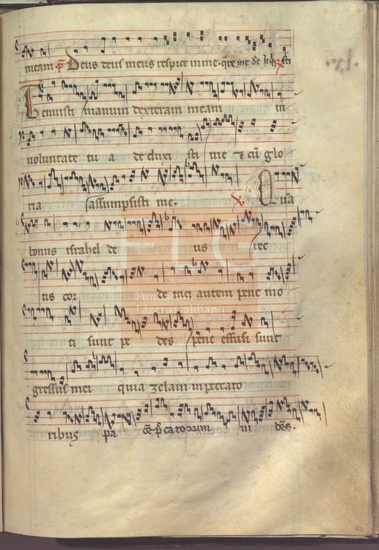 meam. p̅ Deus deus meus respice in me. qre me de li sti
.lx.
Tenuisti manum dexteram meam in
uoluntate tu a de duxi sti me ⁊ cū glo
ria assumpsisti me. Qua
bonus israhel de us rec
tis cor de mei autem pene mo
ti sunt pe des pene effusi sunt
gressus mei quia zelaui in peccato
ribus pa cē p̅catorum ui dēs.